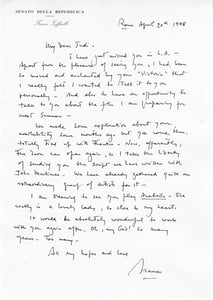 SENATO DELLA REPUBBLICA
Franco Zeffirelli
Rome April 20th 1998
My Dear Judi -
I have just missed you in L.A. -
Apart from the pleasure of seeing you, I had been
so moved and enchanted by your "Victoria" that
I really felt I wanted to tell it to you
personally - And also to have an opportunity to
talk to you about the film I am preparing for
next Summer -
We made some application about your
availability some months ago, but you were, then,
totally tied up with Theatre - Now, apparently,
the door can open again, so I take the liberty
of sending you the Script we have written with
John Mortimer - We have already gathered quite an
extraordinary group of artists for it -
I am dreaming to see you play Arabella - She
really is a lovely lady, so close to my heart.
It would be absolutely wonderful to work
with you again after, oh, my God! so many
years - Too many -
All my hopes and love
Franco